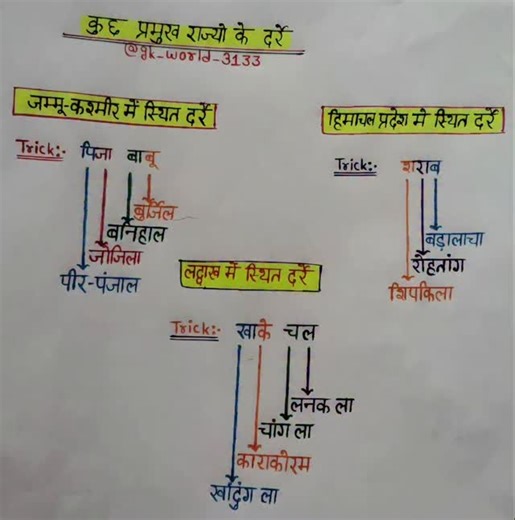 कुछ प्रमुख राज्यो के दर्रे
@gk_world_3133
जम्मू-कश्मीर में स्थित दर्रे
Trick:- पिजा बाबू
बुर्जिल
बनिहाल
जोजिला
पीर-पंजाल
हिमाचल प्रदेश मे स्थित दर्रे
Trick:- शराब
बड़ालाचा
रोहतांग
शिपकिला
लद्दाख में स्थित दर्रे
Trick:- खाके चल
लनक ला
चांग ला
काराकोरम
खार्दुंग ला